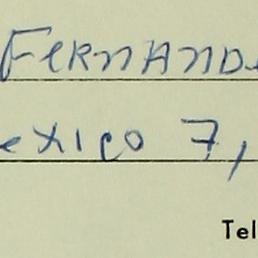 Fernand
exico 7,
Tel